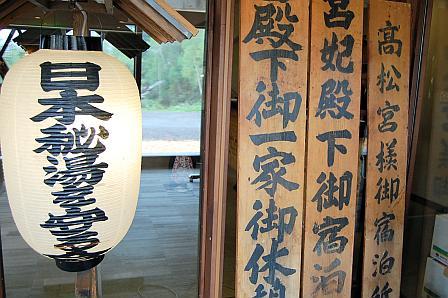 日本秘湯を守る会
殿下御一家御休憩
宮妃殿下御宿泊
高松宮様御宿泊